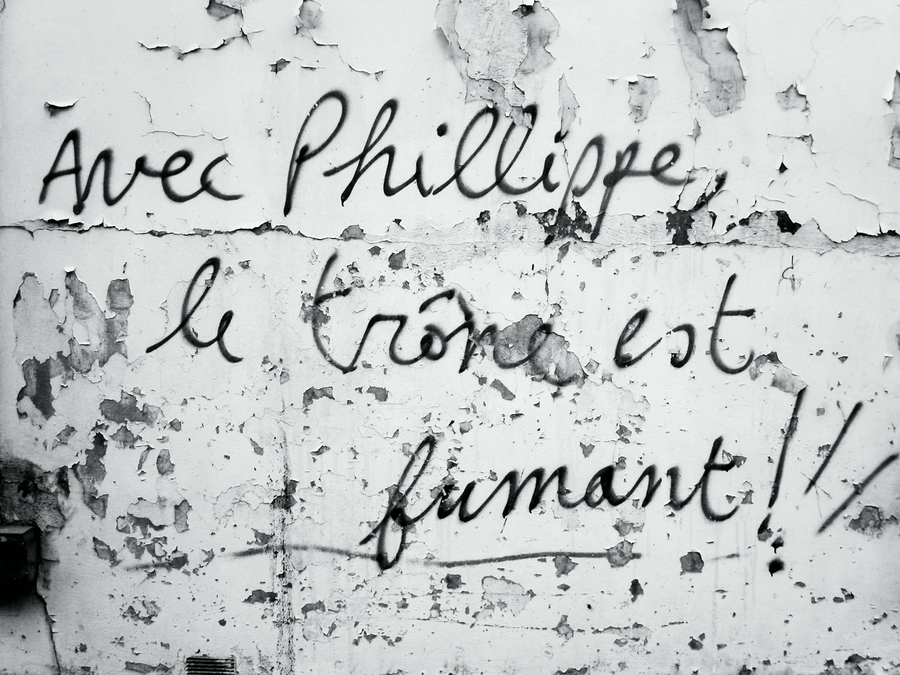 Avec Phillippe,
le trône est
fumant!//